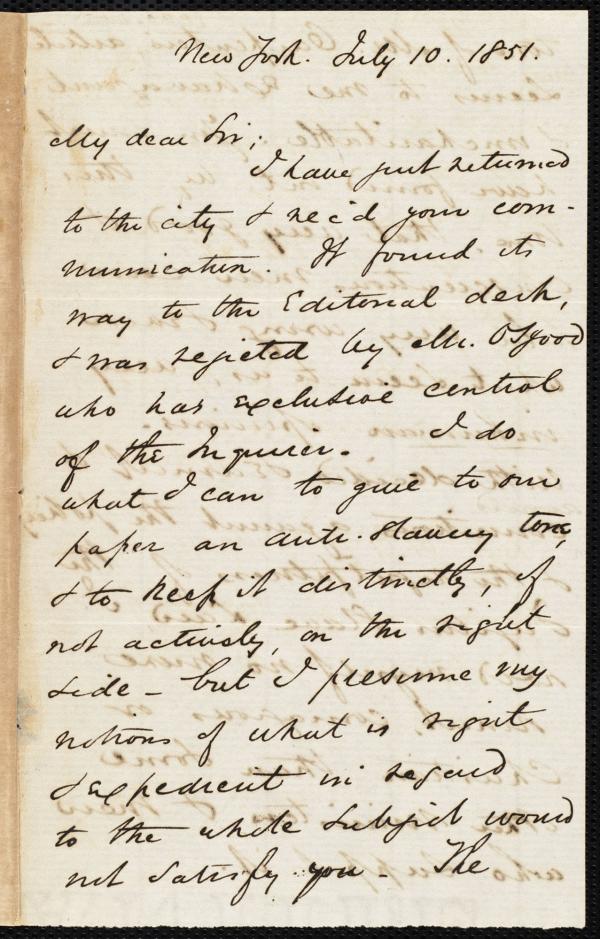 New York. July 10. 1851.
My dear Sir;
I have just returned
to the city & rec'd your com-
munication. It found its
way to the Editorial desk,
& was rejected by Mr. Osgood
who has exclusive control
of the Inquirer. I do
what I can to give to our
paper an anti-slavery tone,
& to keep it distinctly, if
not actively, on the right
side - but I presume my
notions of what is right
& expedient in regard
to the whole subject would
not satisfy you - The